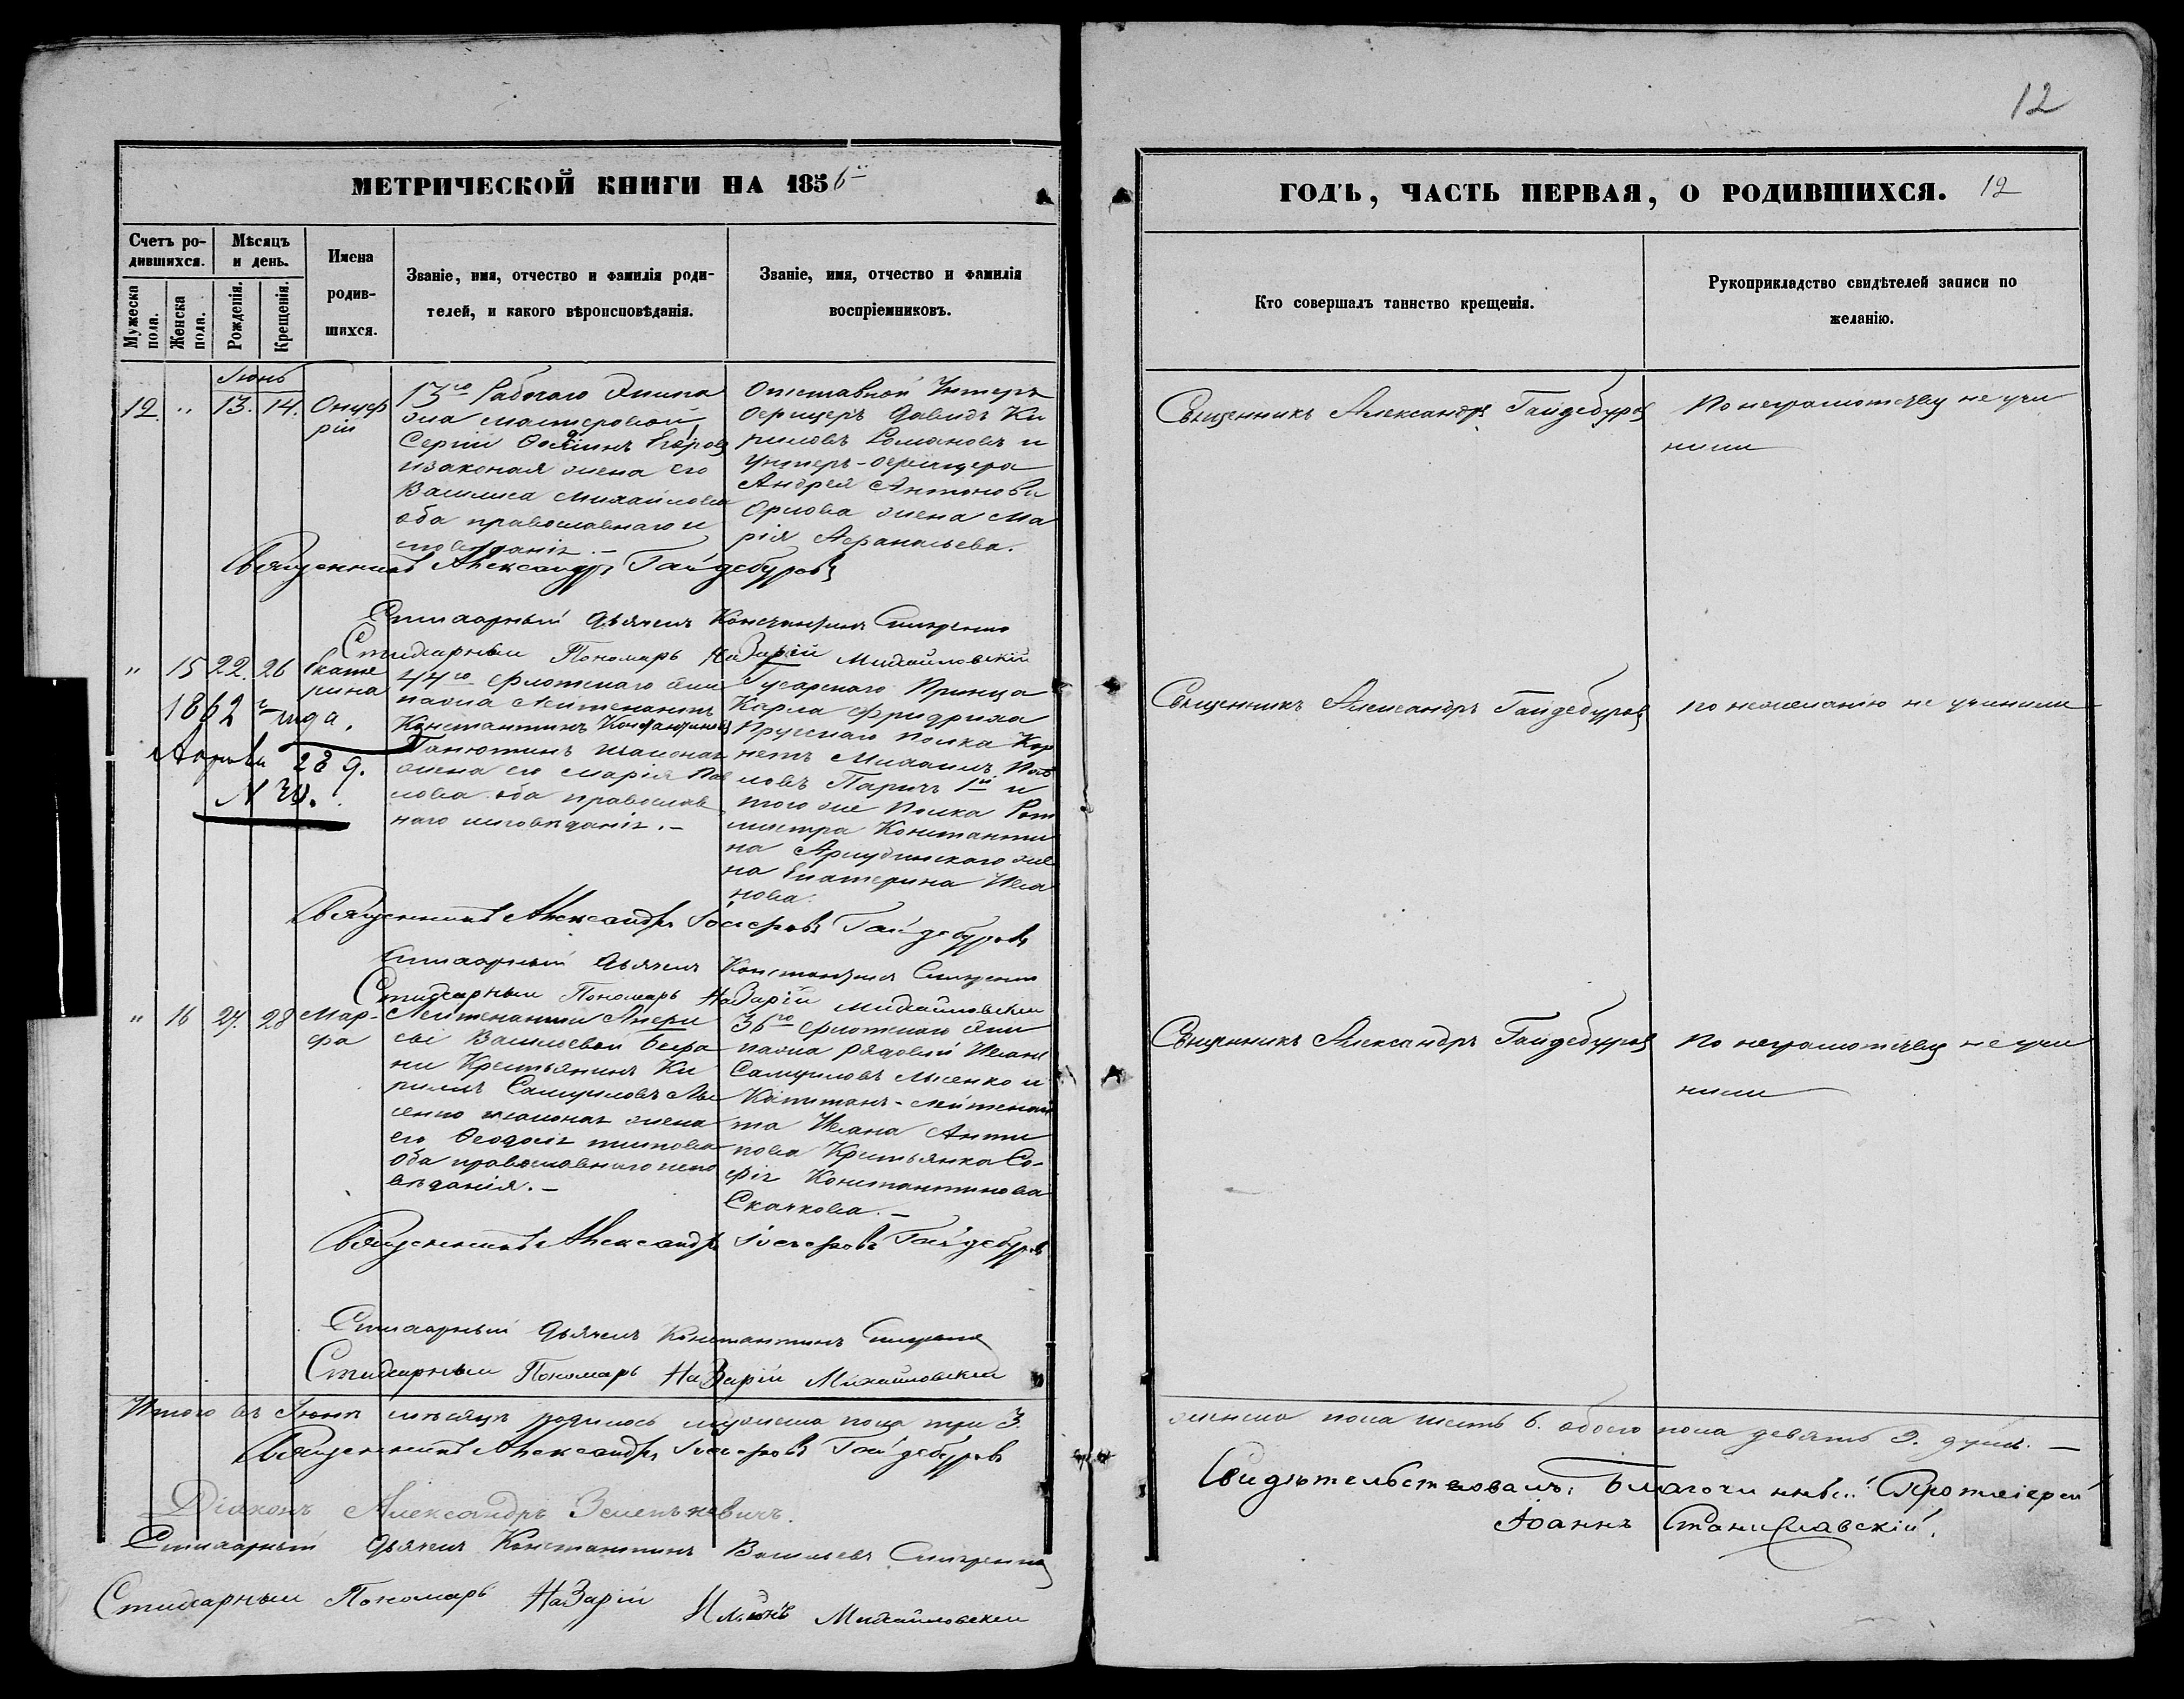 12
МЕТРИЧЕСКОЙ КНИГИ НА 1856й
ГОДЪ, ЧАСТЬ ПЕРВАЯ, О РОДИВШИХСЯ. 12
Счетъ ро-
дившихся.
Мѣсяцъ
и день.
Имена
родив-
шихся.
Званіе, имя, отчество и фамилія роди-
телей, и какого вѣроисповѣданія.
Званіе, имя, отчество и фамилія
воспріемниковъ.
Кто совершалъ таинство крещенія.
Рукоприкладство свидѣтелей записи по
желанію.
Мужеска
пола.
Женска
пола.
Рожденія.
Крещенія.
Іюнь
12 " 13. 14.
Онуф
рій
13го Рабочаго Экипа
жа мастеровой
Сергій
изаконая жена его
Василиса Михайлова
оба православнаго и
сповѣданія. –
Отставной Унтеръ
Офицеръ Давидъ Ки
риловъ Романовъ и
Унтеръ-офицера
Андрея Антонова
Орлова жена Ма
рія Афанасьева.
Священникъ Александръ Гайдебуровъ
По неграмотству не учи
нили
Священникъ Александръ Гайдебуровъ
Стихарный Дьячекъ Константинъ
Стихарный Пономарь Назарій Михайловскій
" 15 22. 26
Екате
рина
1862 года.
Апрѣля 28 д.
44го Флотскаго Эки
пажа Лейтенантъ
Константинъ Константиновъ
законая
жена его Марія Пав
лова оба православ
наго исповѣданія. –
Гусарскаго Принца
Карла Фридриха
Прусскаго полка Кор
нетъ Михаилъ Пав
ловъ 1й и
того же полка Рот
мистра Константи
на же
на Екатерина Ива
нова.
Священникъ Александръ Гайдебуровъ
по нежеланію не учинили
Священникъ Александръ Іосифовъ Гайдебуровъ
Стихарный Дьячекъ Константинъ
Стихарный Пономарь Назарій Михайловскій
" 16 27. 28
Мар-
фа
Лейтенантши
Васильевой
ни Крестьянинъ Ки
рилъ Самуиловъ Лы
сенко законая жена
его Феодосія Титова
оба православнаго испо
вѣданія. –
36го Флотскаго Эки
пажа рядовый Иванъ
Самуиловъ Лысенко и
Капитанъ-Лейтенан
та Ивана Анти
пова Крестьянка Со-
фія Константинова
Скачкова. –
Священникъ Александръ Гайдебуровъ
по неграмотству не учи
нили
Священникъ Александръ Іосифовъ Гайдебуровъ
Стихарный Дьячекъ Константинъ
Стихарный Пономарь Назарій Михайловскій
Итого въ Іюнѣ мѣсяцѣ родилось мужеска пола три 3.
женска пола шесть 6. обоего пола девять 9. душъ. –
Священникъ Александръ Іосифовъ Гайдебуровъ
Діаконъ Александръ
Стихарный Дьячекъ Константинъ Васильевъ
Стихарный Пономарь Назарій Михайловскій
Свидѣтельствовалъ: Благочинный Протоіерей
Іоаннъ Станиславскій.